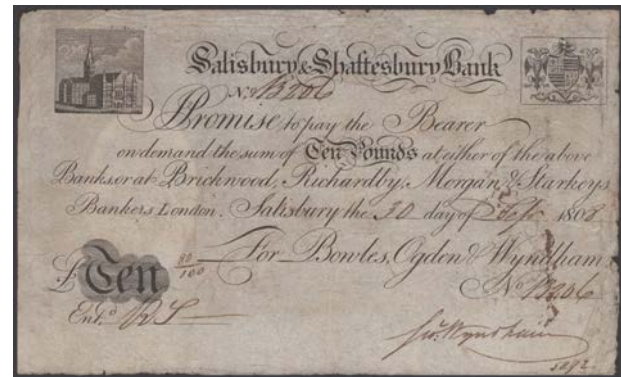 Salisbury & Shaftesbury Bank
No. 13206
Promise to pay the Bearer
on demand the sum of Ten Pounds at either of the above
Banks, or at Brickwood, Richardby, Morgan, & Starkeys
Bankers London. Salisbury the 30 day of 1808
For Bowles, Ogden & Wyndham,
£ Ten 80/100
No 13206
Ent.d
Wyndham